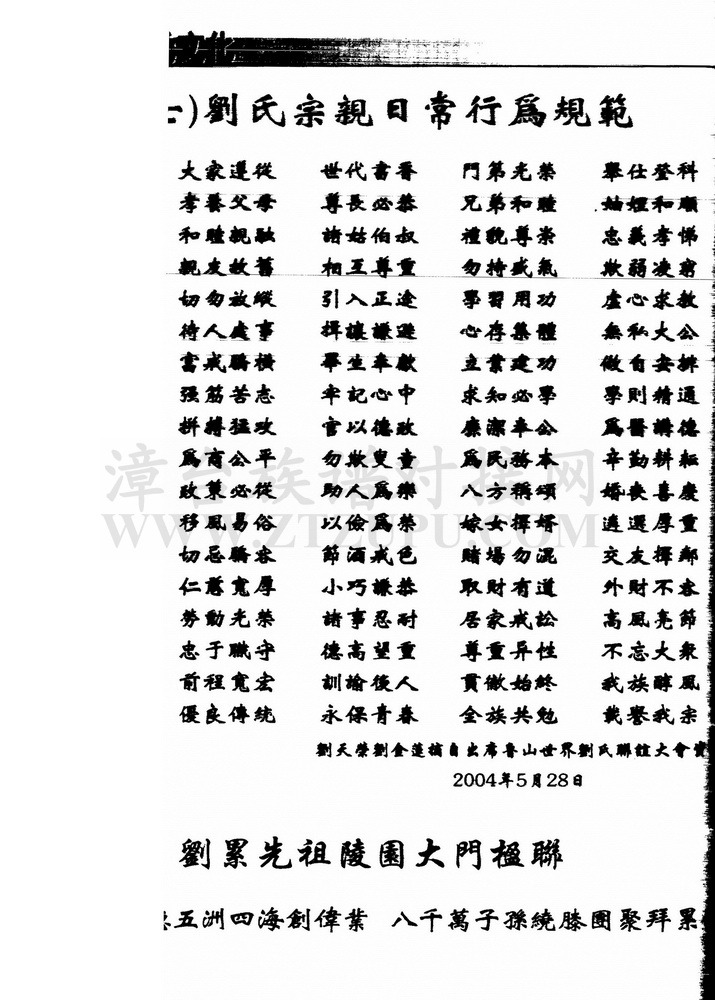 文化
七)劉氏宗親日常行爲規範
大家遵從 世代書香 門第光榮 舉仕登科
孝養父母 尊長必恭 兄弟和睦 妯娌和順
和睦親融 諸姑伯叔 禮貌尊崇 忠義孝悌
親友故舊 相互尊重 勿持盛氣 欺弱凌窮
切勿放縱 引入正途 學習用功 虛心求教
待人處事 揖讓謙遜 心存集體 無私大公
富戒驕橫 畢生奉獻 立業建功 做自安排
强筋苦志 牢記心中 求知必學 學則精通
拼搏猛攻 官以德政 廉潔奉公 爲醫講德
爲商公平 勿欺叟童 爲民務本 辛勤耕耘
政策必從 助人爲樂 八方稱頌 婚喪喜慶
移風易俗 以儉爲榮 嫁女擇婿 遴選厚重
切忌驕容 節酒戒色 賭場勿混 交友擇鄰
仁慈寬厚 小巧謙恭 取財有道 外財不容
勞動光榮 諸事忍耐 居家戒訟 高風亮節
忠于職守 德高望重 尊重异性 不忘大衆
前程寬宏 訓諭後人 貫徹始終 我族醇風
優良傳統 永保青春 全族共勉 載譽我宗
劉天榮劉金蓮摘自出席魯山世界劉氏聯誼大會
2004年5月28日
劉累先祖陵園大門楹聯
五洲四海創偉業 八千萬子孫繞膝團聚拜累
漳台族譜对接网
WWW.ZTZUPU.COM